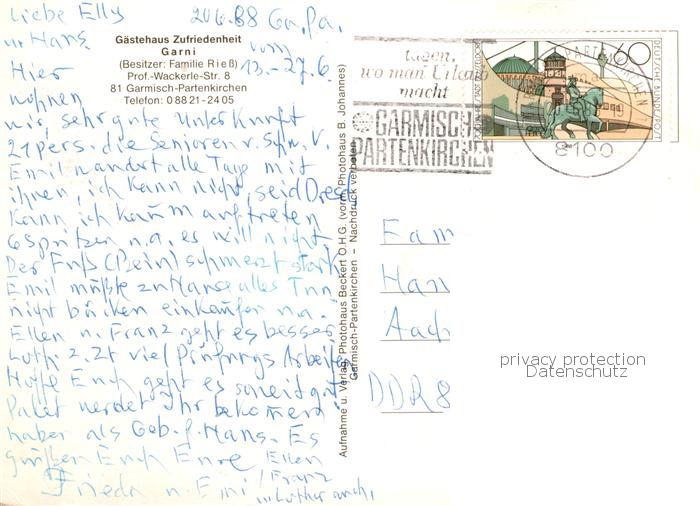 Liebe Elly 20.6.88 Ga. Pa.
u. Hans. vom
Hier 13.-27.6.
wohnen
Gästehaus Zufriedenheit
Garni
(Besitzer: Familie Rieß)
Prof.-Wackerle-Str. 8
81 Garmisch-Partenkirchen
Telefon: 0 88 21 - 24 05
wir, sehr gute Unterkunft
21 pers. die Senioren v. Schw. V.
Emil wandert alle Tage mit
ihnen, ich kann nicht, seid
kann ich kaum auftreten
6 Spritzen u.a. es will nicht.
Der Fuß (Bein) schmerzt stark
Emil müßte zu Hause alles Tun
nicht bücken einkaufen u.a.
Ellen u. Franz geht es besser
z.Zt viel Prüfungs Arbeiten
Hoffe Euch geht es soweit gut
Paket werdet Ihr bekommen
haber als Geb. f. Hans. Es
grüßen Euch Eure Ellen
Frieda u. Emil / Franz
u. Luther auch,
Aufnahme u. Verlag: Photohaus Beckert O.H.G. (vorm. Photohaus B. Johannes)
Garmisch-Partenkirchen – Nachdruck verboten
wo man Urlaub
macht
GARMISCH
PARTENKIRCHEN
GARMISCH-PARTENKIRCHEN
8100
60
DEUTSCHE BUNDESPOST
Fam
Han
Aach
DDR 8
privacy protection
Datenschutz